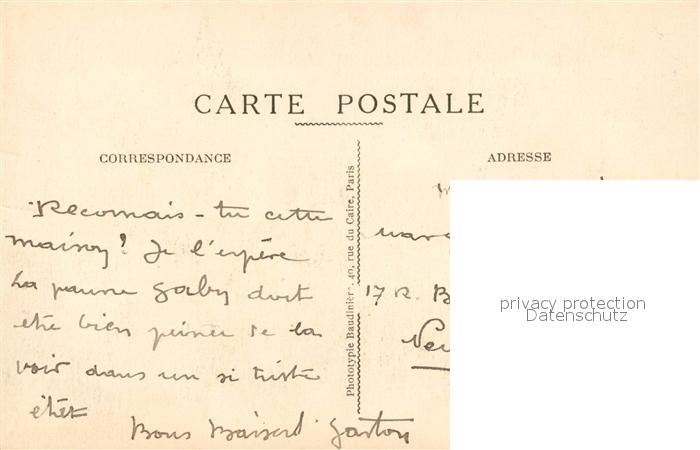 CARTE POSTALE
CORRESPONDANCE
ADRESSE
Reconnais-tu cette
maison? Je l'espère
La pauvre Gaby doit
etre bien peinée de la
voir dans un si triste
état
Bons Baisers Gaston
Phototypie Baudinière, 40, rue du Caire, Paris
17 R. B
privacy protection
Datenschutz